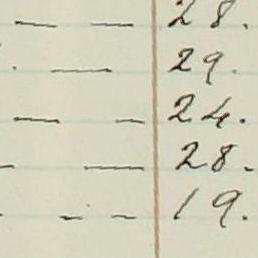 — — 28.
. — 29.
— – 24.
– — 28.
. – – 19.